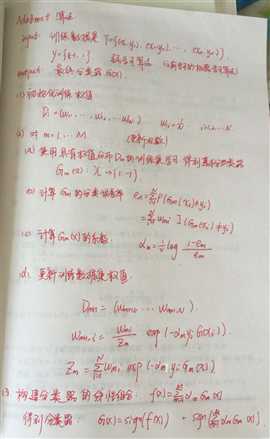 Adaboost 算法
input: 训练数据集 T={(x₁,y₁), (x₂,y₂), ..., (xₙ,yₙ)}
y={+1,-1} 弱学习算法
output: 最终分类器 G(x).
(1) 初始化训练权值
D₁ = (w₁₁, ..., w₁ᵢ, ... w₁N) w₁ᵢ = 1/N i=1,2...N
(2) 对 m=1,...M
(a) 使用具有权值分布 Dm 的训练集学习 得到基本分类器
Gm(x): X→{1,-1}
(b) 计算 Gm 的分类误差率 em = Σ P(Gm(xi)≠yi)
= Σ wmi I(Gm(xi)≠yi)
(c) 计算 Gm(x) 的系数. αm = ½ log (1-em)/em
(d) 更新训练数据集权值.
Dm+1 = (wm+1,1, ... wm+1,N).
wm+1,i = wmi/Zm exp(-αm yi G(xi)).
Zm = Σ wmi exp(-αm yi Gm(xi))
(3) 构建分类器的线性组合. f(x) = Σ αm Gm(x)
得到分类器: G(x) = sign(f(x)) = sign(Σ αm Gm(x))